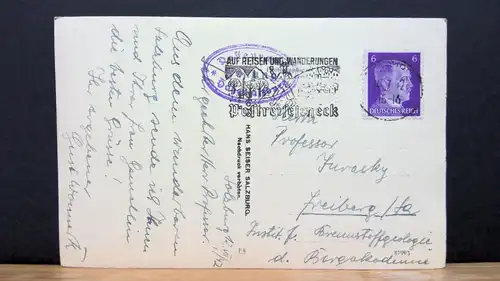 AUF REISEN UND WANDERUNGEN
Postreisescheck
6
6
DEUTSCHES REICH
Herrn
Professor
Jurasky
Freiberg/Sa
Institut f. Brennstoffgeologie
d. Bergakademie
HANS SEISER SALZBURG.
Nachdruck verboten.
Salzburg
Sehr geehrter Herr Professor!
Aus dem wunderbaren
Salzburg sende ich Ihnen
und Ihrer Frau Gemahlin
die besten Grüsse!
Ihr ergebener